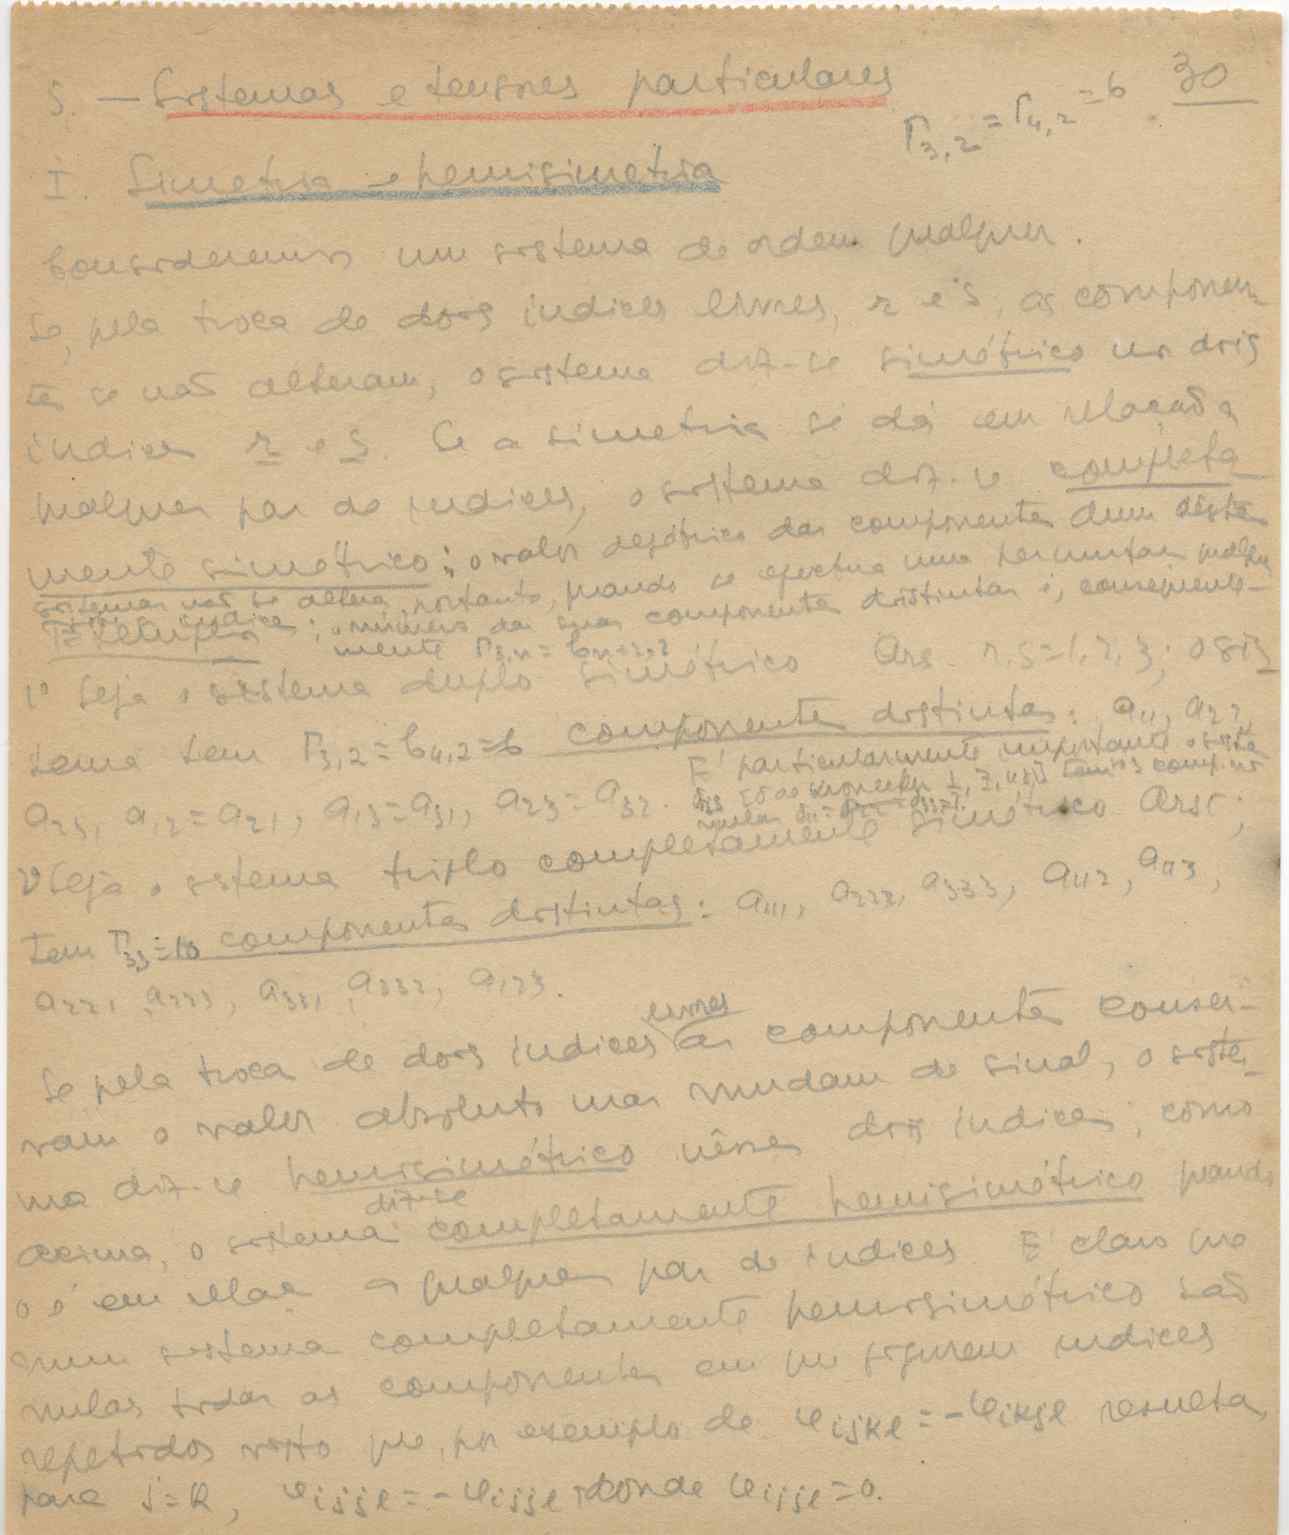 30
5. — Sistemas e tensores particulares
Γ3,2 = Γ4,2 = 6.
I. Simetria e hemisimetria
Consideremos um sistema de ordem qualquer.
Se, pela troca de dois indices livres, r e s, as componen-
tes se não alteram, o sistema diz-se simétrico nos dois
indices r e s. Se a simetria se dá em relação a
qualquer par de indices, o sistema diz-se completa-
mente simétrico; o valor das componentes dum
sistema não se altera, portanto, quando se efectua uma permutação qualquer
indices; o número das suas componentes distintas é, consequente-
mente
Exemplos
1º Seja o sistema duplo simétrico ars. r,s=1,2,3; o sis-
tema tem Γ3,2 = C4,2 = 6 componentes distintas: a11, a22,
a33, a12=a21, a13=a31, a23=a32.
É particularmente importante o sistema
2º Seja o sistema triplo completamente simétrico arst;
tem Γ3,3=10 componentes distintas: a111, a222, a333, a112, a113,
a221, a223, a331, a332, a123.
Se pela troca de dois indices livres as componentes conser-
vam o valor absoluto mas mudam de sinal, o siste-
ma diz-se hemisimétrico nêsses dois indices; como
acima, o sistema diz-se completamente hemisimétrico quando
o é em relação a qualquer par de indices. É claro que
num sistema completamente hemisimétrico são
nulas todas as componentes em que figurem indices
repetidos visto que, por exemplo de eijkl = -eikjl resulta,
para j=k, eijjl = -eijjl donde eijjl = 0.